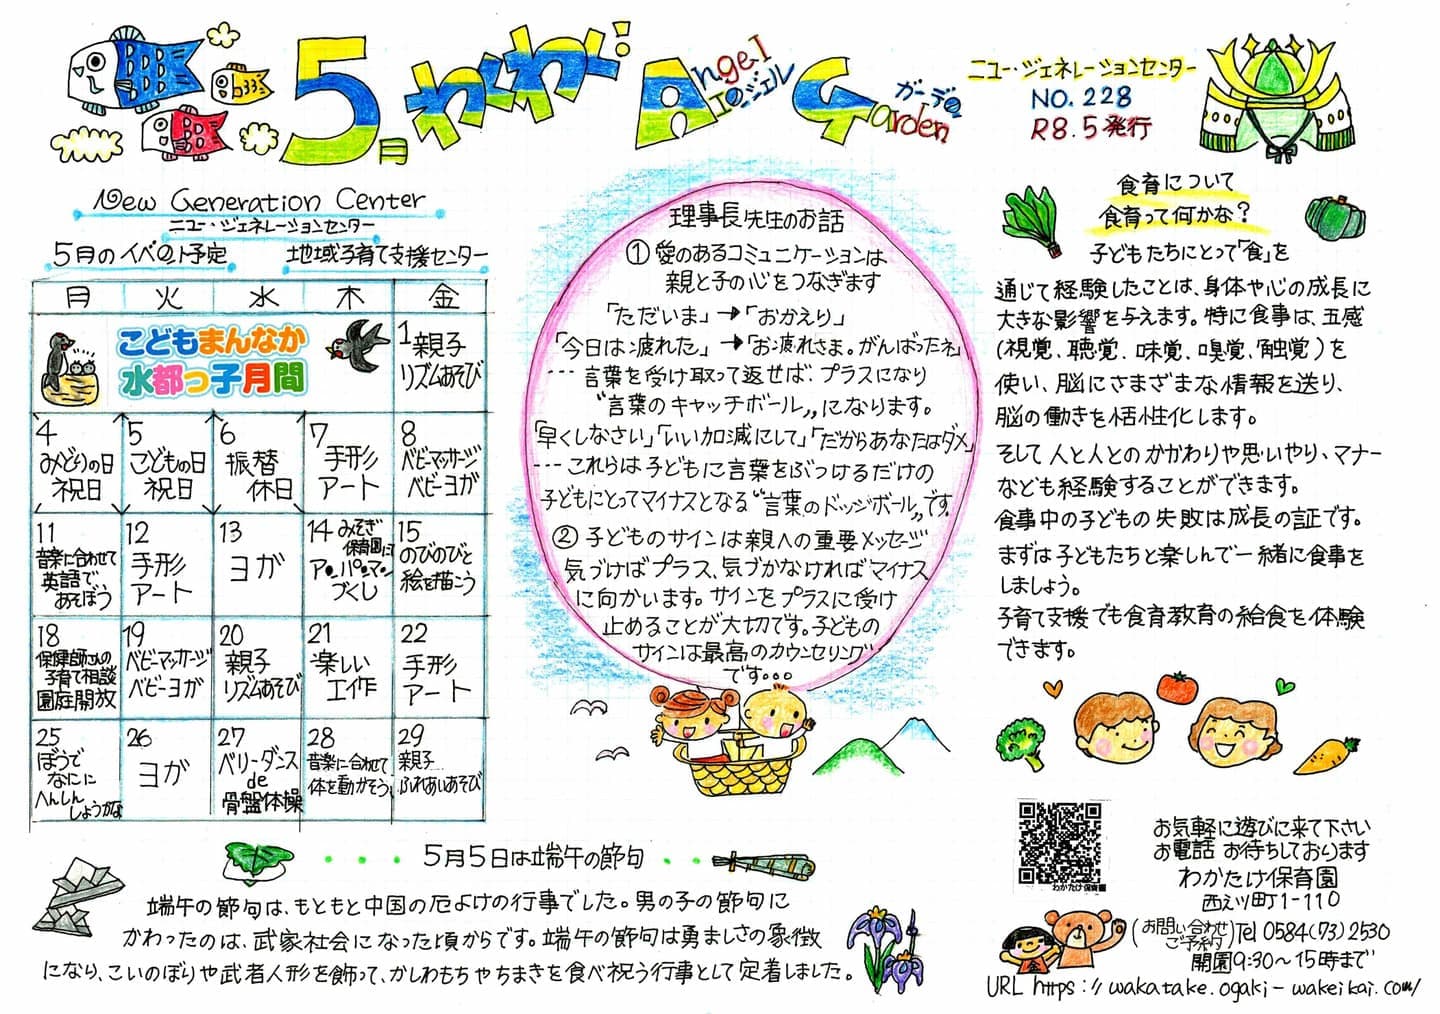 5月 わくわく Angel Garden
エンジェル ガーデン
ニュー・ジェネレーションセンター
NO.228
R8.5発行
New Generation Center
ニュー・ジェネレーションセンター
5月のイベント予定 地域子育て支援センター
月 火 水 木 金
こどもまんなか
水都っ子月間
1 親子
リズムあそび
4 みどりの日
祝日
5 こどもの日
祝日
6 振替
休日
7 手形
アート
8 ベビーマッサージ
ベビーヨガ
11 音楽に合わせて
英語で
あそぼう
12 手形
アート
13 ヨガ
14 みそぎ
保育園に
アンパンマン
づくし
15 のびのびと
絵を描こう
18 保健師さんの
子育て相談
園庭開放
19 ベビーマッサージ
ベビーヨガ
20 親子
リズムあそび
21 楽しい
工作
22 手形
アート
25 ぼうで
なにに
へんしん
しようかな
26 ヨガ
27 ベリーダンス
de
骨盤体操
28 音楽に合わせて
体を動かそう
29 親子
ふれあいあそび
理事長先生のお話
① 愛のあるコミュニケーションは
親と子の心をつなぎます
「ただいま」→「おかえり」
「今日は疲れた」→「お疲れさま。がんばったネ」
… 言葉を受け取って返せば、プラスになり
〝言葉のキャッチボール〟になります。
「早くしなさい」「いい加減にして」「だからあなたはダメ」
… これらは子どもに言葉をぶつけるだけの
子どもにとってマイナスとなる〝言葉のドッジボール〟です。
② 子どものサインは親への重要メッセージ
気づけばプラス、気づかなければマイナス
に向かいます。サインをプラスに受け
止めることが大切です。子どもの
サインは最高のカウンセリング
です。。。
食育について
食育って何かな？
子どもたちにとって「食」を
通じて経験したことは、身体や心の成長に
大きな影響を与えます。特に食事は、五感
(視覚、聴覚、味覚、嗅覚、触覚)を
使い、脳にさまざまな情報を送り、
脳の働きを活性化します。
そして人と人とのかかわりや思いやり、マナー
なども経験することができます。
食事中の子どもの失敗は成長の証です。
まずは子どもたちと楽しんで一緒に食事を
しましょう。
子育て支援でも食育教育の給食を体験
できます。
5月5日は端午の節句
端午の節句は、もともと中国の厄よけの行事でした。男の子の節句に
かわったのは、武家社会になった頃からです。端午の節句は勇ましさの象徴
になり、こいのぼりや武者人形を飾って、かしわもちやちまきを食べ祝う行事として定着しました。
わかたけ保育園
お気軽に遊びに来て下さい
お電話 お待ちしております
わかたけ保育園
西之川町1-110
(お問い合わせ
ご予約)Tel 0584(73)2530
開園9:30～15時まで
金
URL https://wakatake.ogaki-wakeikai.com/